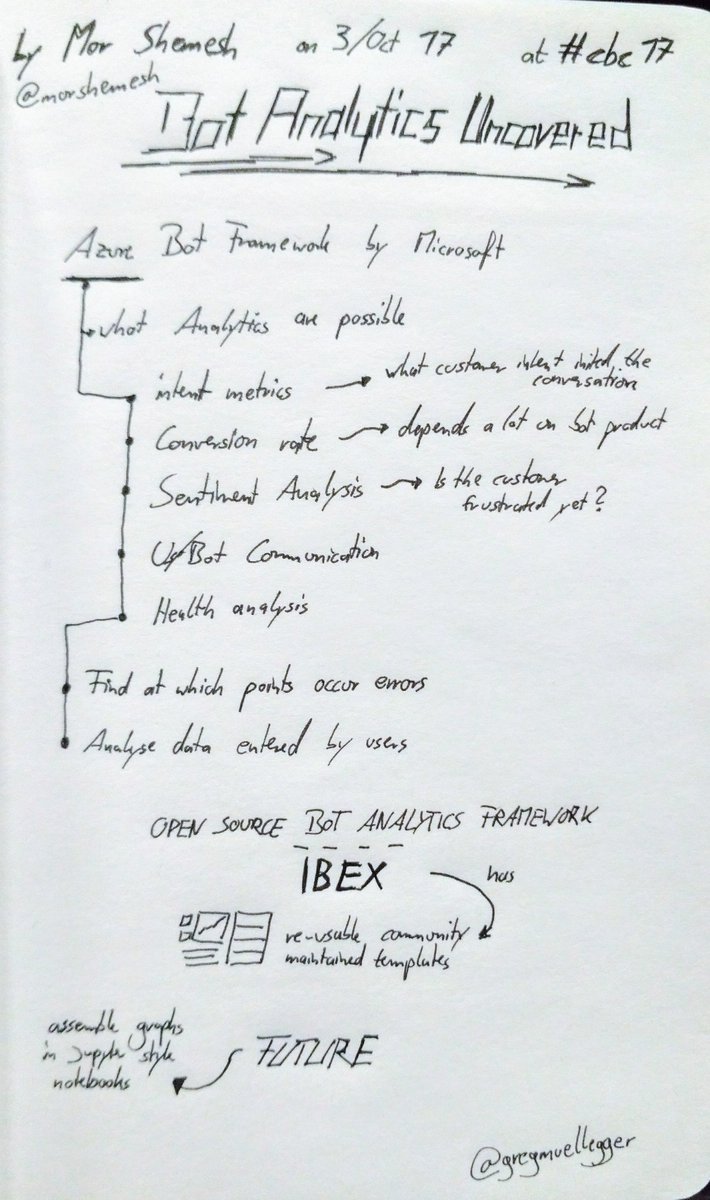 by Mor Shemesh on 3/Oct 17 at #cbc17
@morshemesh
Bot Analytics Uncovered
Azure Bot Framework by Microsoft
what Analytics are possible
intent metrics
what customer intent inited the
conversation
Conversion rate
depends a lot on bot product
Sentiment Analysis
Is the customer
frustrated yet?
Bot Communication
Health analysis
Find at which points occur errors
Analyse data entered by users
OPEN SOURCE BOT ANALYTICS FRAMEWORK
IBEX
has
re-usable community
maintained templates
assemble graphs
in Jupyter style
notebooks
FUTURE
@gregmuellegger